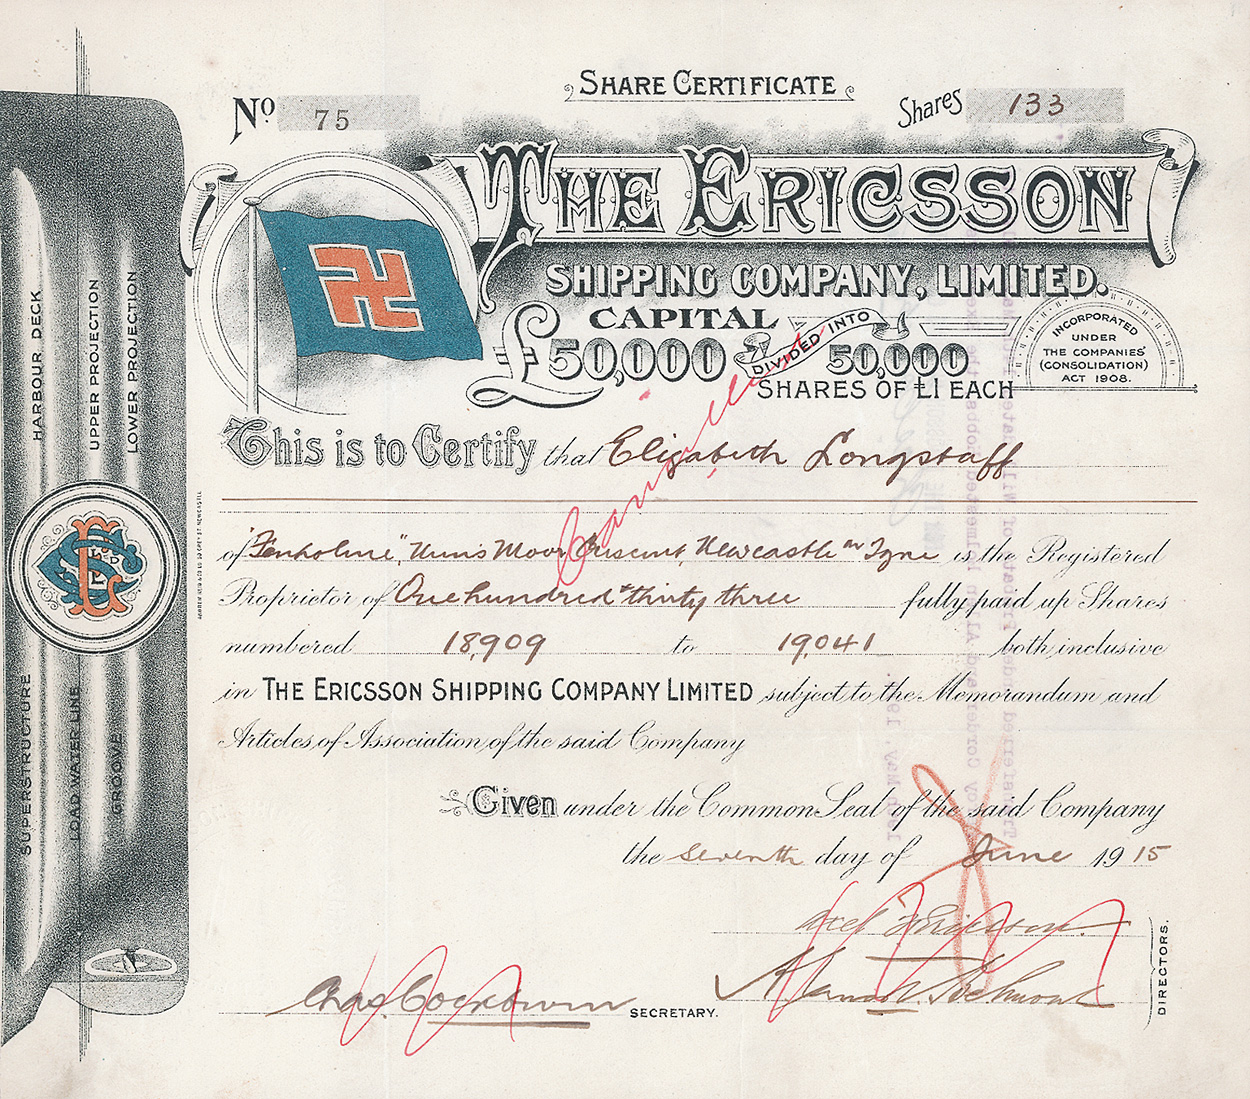 SHARE CERTIFICATE
No 75
Shares 133
THE ERICSSON
SHIPPING COMPANY, LIMITED.
CAPITAL
£50,000 DIVIDED INTO 50,000
SHARES OF £1 EACH
INCORPORATED
UNDER
THE COMPANIES'
(CONSOLIDATION)
ACT 1908.
This is to Certify that Elizabeth Longstaff
of "Fenholme", Nuns Moor Crescent, Newcastle on Tyne is the Registered
Proprietor of One hundred & thirty three fully paid up Shares
numbered 18,909 to 19,041 both inclusive
in THE ERICSSON SHIPPING COMPANY LIMITED subject to the Memorandum and
Articles of Association of the said Company
Given under the Common Seal of the said Company
the Seventh day of June 1915
Cancelled
Axel Ericsson
DIRECTORS.
SECRETARY.
HARBOUR DECK
UPPER PROJECTION
LOWER PROJECTION
SUPERSTRUCTURE
LOAD WATER LINE
GROOVE